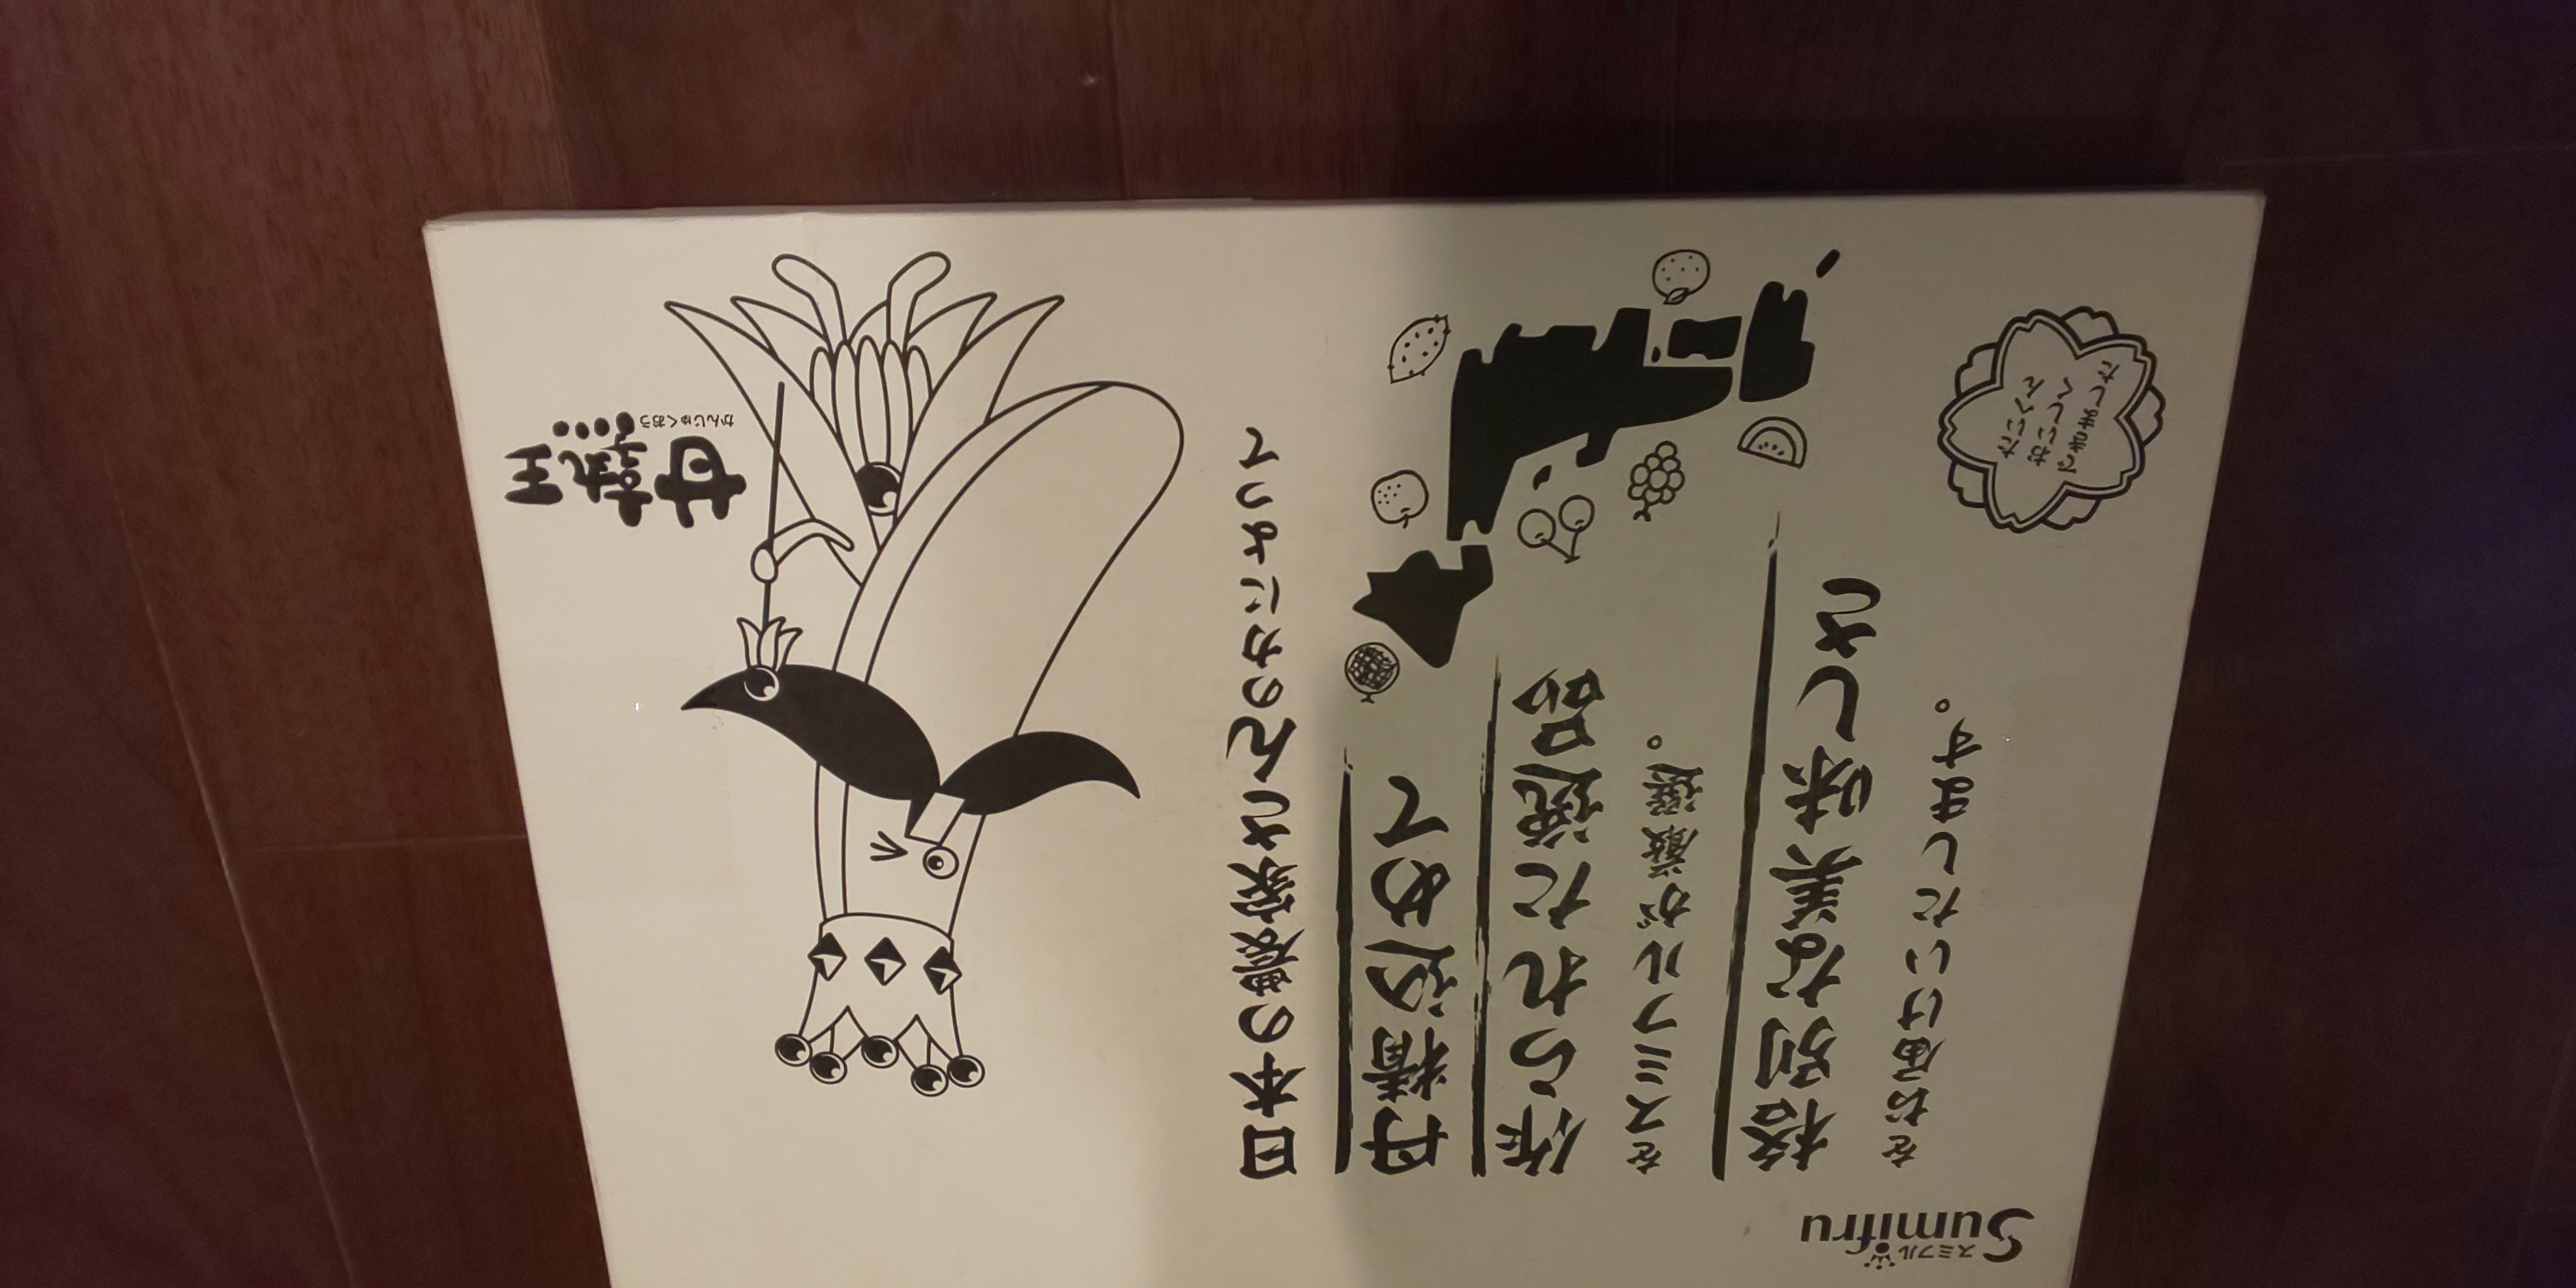 甘熟王
かんじゅくおう
日本の農家さんの力によって
丹精込めて
作られた逸品
をスミフルが厳選。
格別な美味しさ
をお届けいたします。
たいへん
おいしく
できました
スミフル
Sumifru